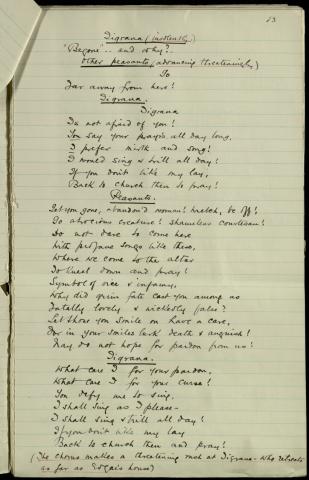 23
Tigrana (insolently)
"Begone".. and why?..
Other peasants (advancing threateningly)
Go
Far away from here!
Tigrana.
Tigrana
I'm not afraid of you!
You say your prayers all day long,
I prefer mirth and song!
I would sing & trill all day!
If you don't like my lay,
Back to church then to pray!
Peasants.
Get you gone, abandon'd woman! wretch, be off!
Go atrocious creature! shameless courtesan!
Do not dare to come here
With profane songs like these,
Where we come to the altar
To kneel down and pray!
Symbol of vice & infamy,
Why did grim fate cast you among us
Fatally lovely & wickedly false?
Let those you smile on have a care,
For in your smiles lurk death & anguish!
Nay do not hope for pardon from us!
Tigrana.
What care I for your pardon,
What care I for your curse!
You defy me to sing,
I shall sing as I please—
I shall sing & trill all day!
If you don't like my lay
Back to church then and pray!
(The chorus makes a threatening rush at Tigrana - who retreats
as far as Edgar's house)